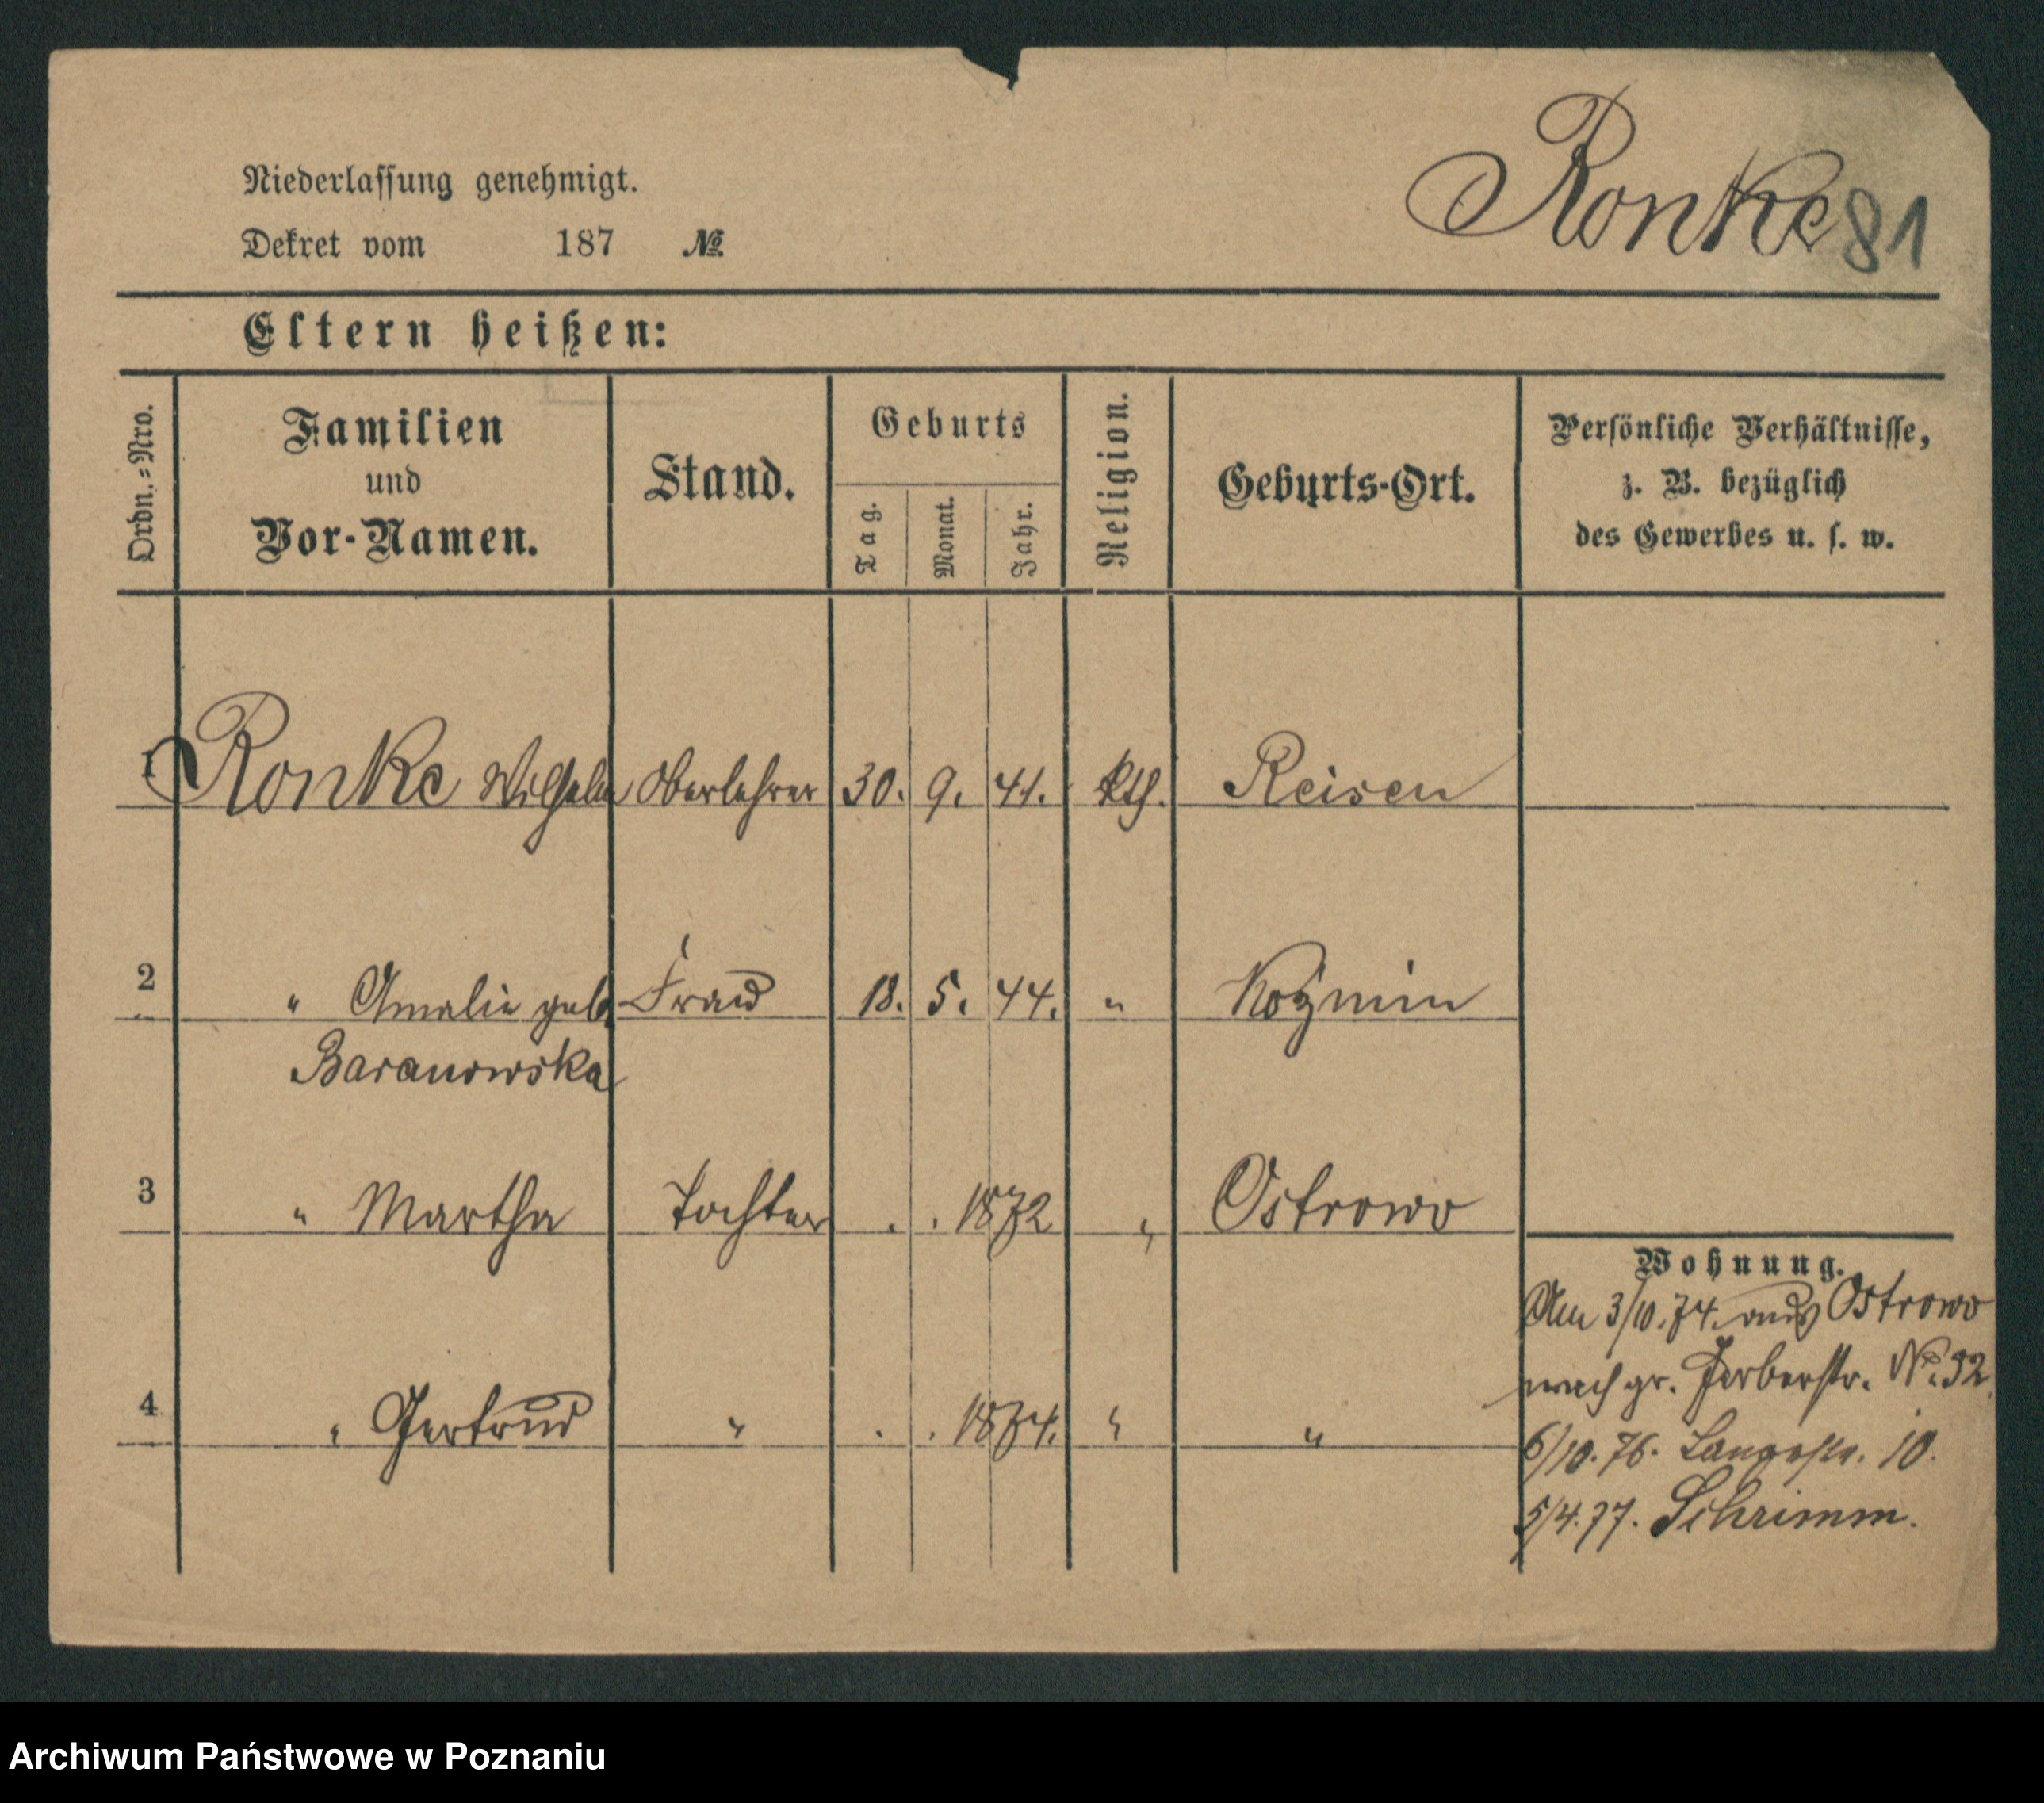 Ronke 81
Niederlassung genehmigt.
Dekret vom 187 №
Eltern heißen:
Ordn.=Nro.
Familien
und
Vor-Namen.
Stand.
Geburts
Tag.
Monat.
Jahr.
Religion.
Geburts-Ort.
Persönliche Verhältnisse,
z. B. bezüglich
des Gewerbes u. s. w.
1 Ronke Wilhelm Oberlehrer 30. 9. 41. kth. Reisen
2 " Amalie geb. Frau 18. 5. 44. " Kozmin
Baranowska
3 " Martha Tochter . . 1872 " Ostrowo
Wohnung.
Am 3/10. 74. aus Ostrowo
nach gr. Gerberstr. No. 32.
4 " Gertrud " . . 1874. " "
6/10. 76. Langestr. 10.
5/4. 77. Schrimm.
Archiwum Państwowe w Poznaniu